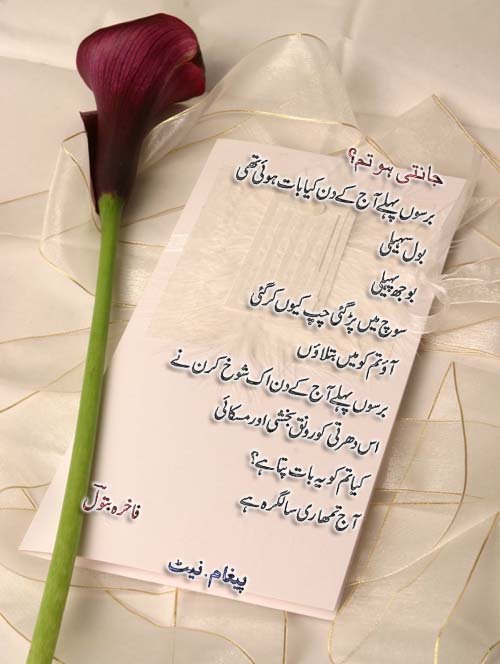 جانتی ہو تم؟
برسوں پہلے آج کے دن کیا بات ہوئی تھی
بول سہیلی
بوجھ پہیلی
سوچ میں پڑ گئی چپ کیوں کر گئی
آؤ تم کو میں بتلاؤں
برسوں پہلے آج کے دن اک شوخ کرن نے
اس دھرتی کو رونق بخشی اور مسکائی
کیا تم کو یہ بات پتا ہے؟
آج تمھاری سالگرہ ہے
فاخرہ بتول
پیغام.نیٹ